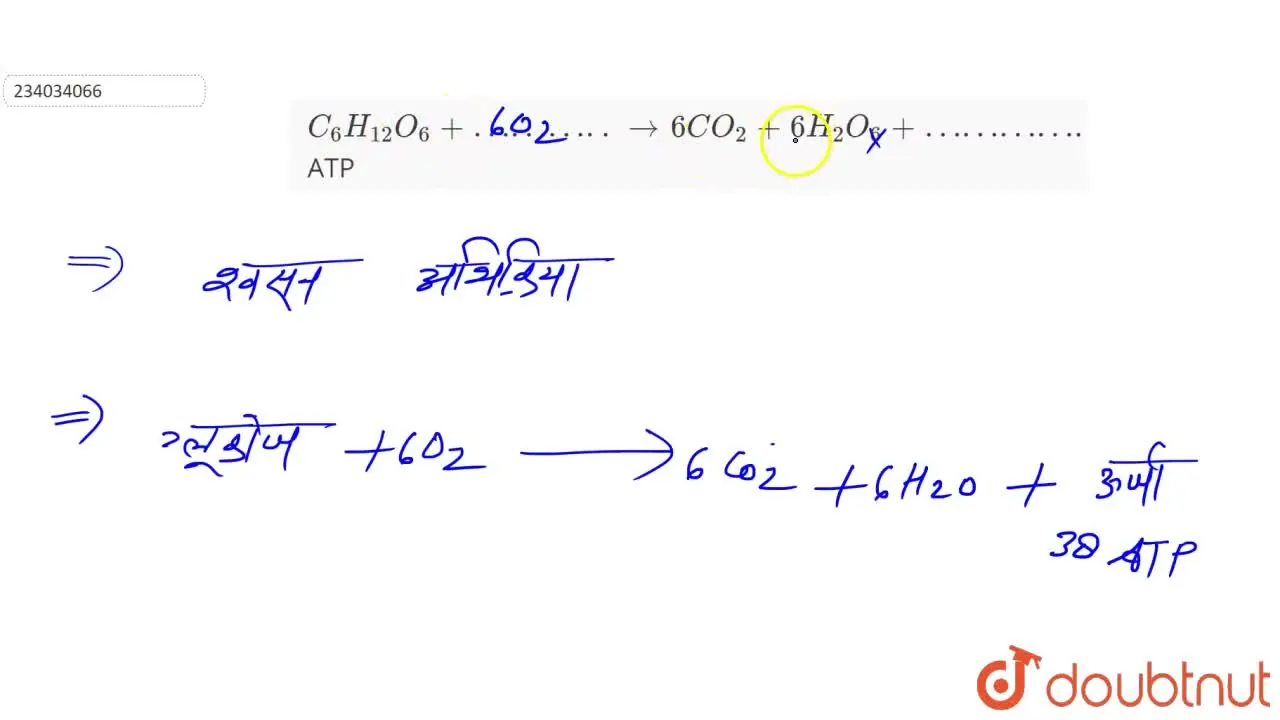 234034066
C₆H₁₂O₆ + ............. 6O₂ → 6CO₂ + 6H₂O₆ x + .............
ATP
⇒ श्वसन अभिक्रिया
⇒ ग्लूकोज +6O₂ ⟶ 6CO₂ +6H₂O + ऊर्जा
38 ATP
doubtnut